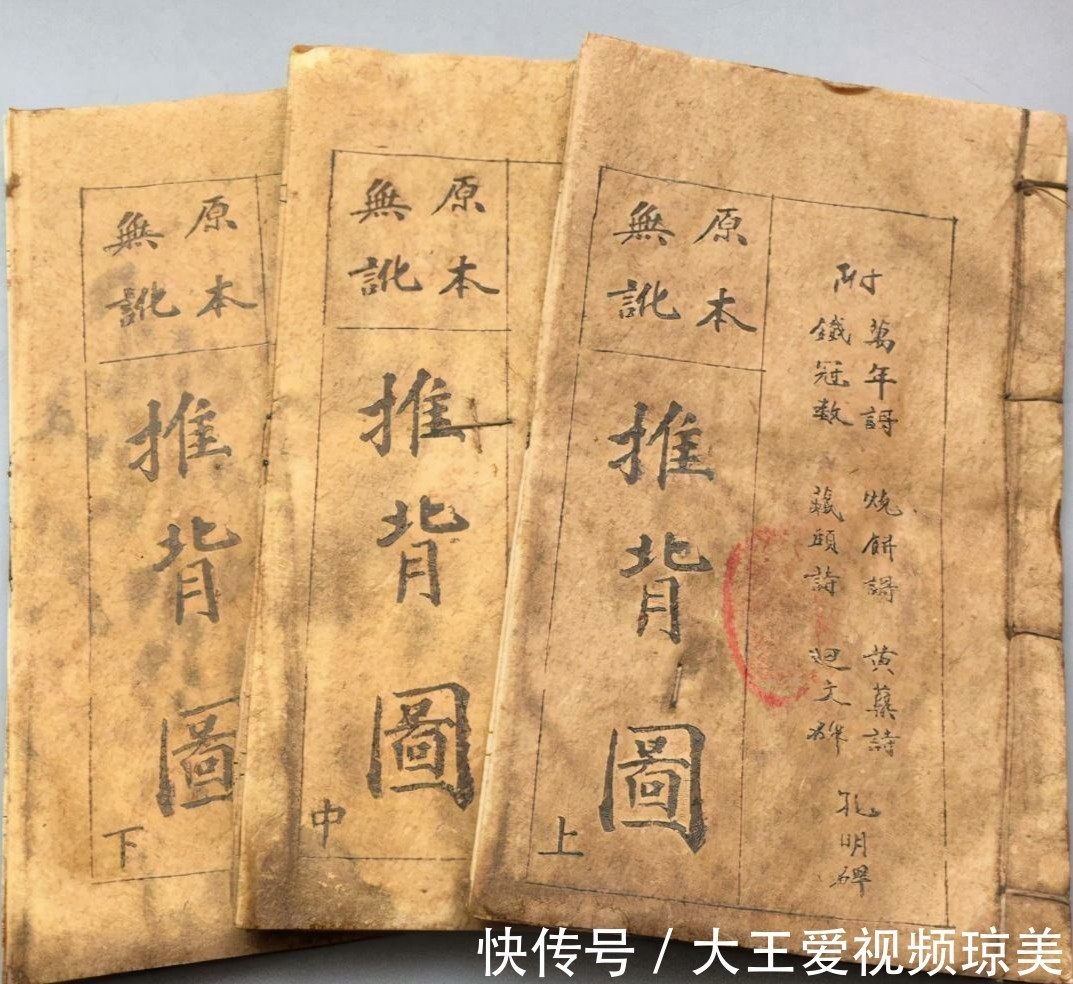 附
萬年謌 烧餅謌 黄蘗詩
鐵冠数 藏頭詩 迴文碑
孔明碑
原本
無訛
推背圖
上
原本
無訛
推背圖
中
原本
無訛
推背圖
下
快传号 / 大王爱视频琼美